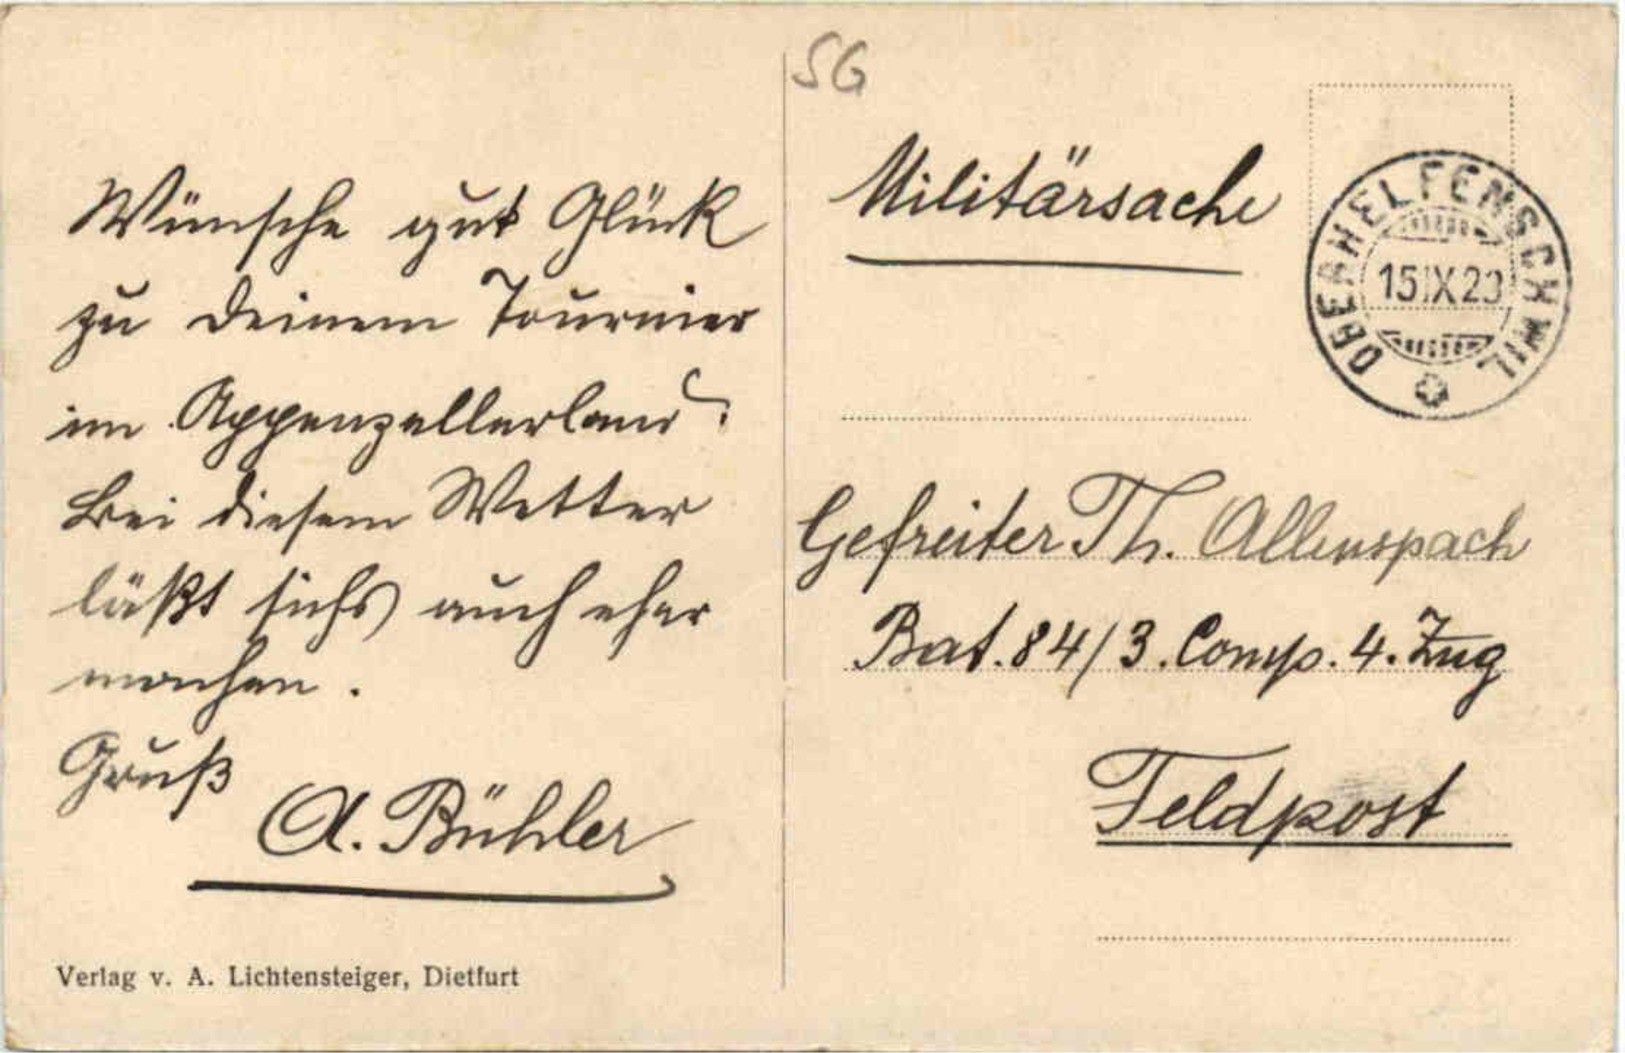 Wünsche gut Glück
zu Deinem Tournier
im Appenzellerland.
Bei diesem Wetter
läßt sichs auch eher
machen.
Gruß
A. Bühler
Verlag v. A. Lichtensteiger, Dietfurt
SG
Militärsache
OBERHELFENSCHWIL
15 IX 23
Gefreiter Th. Allenspach
Bat. 84/3. Comp. 4. Zug
Feldpost